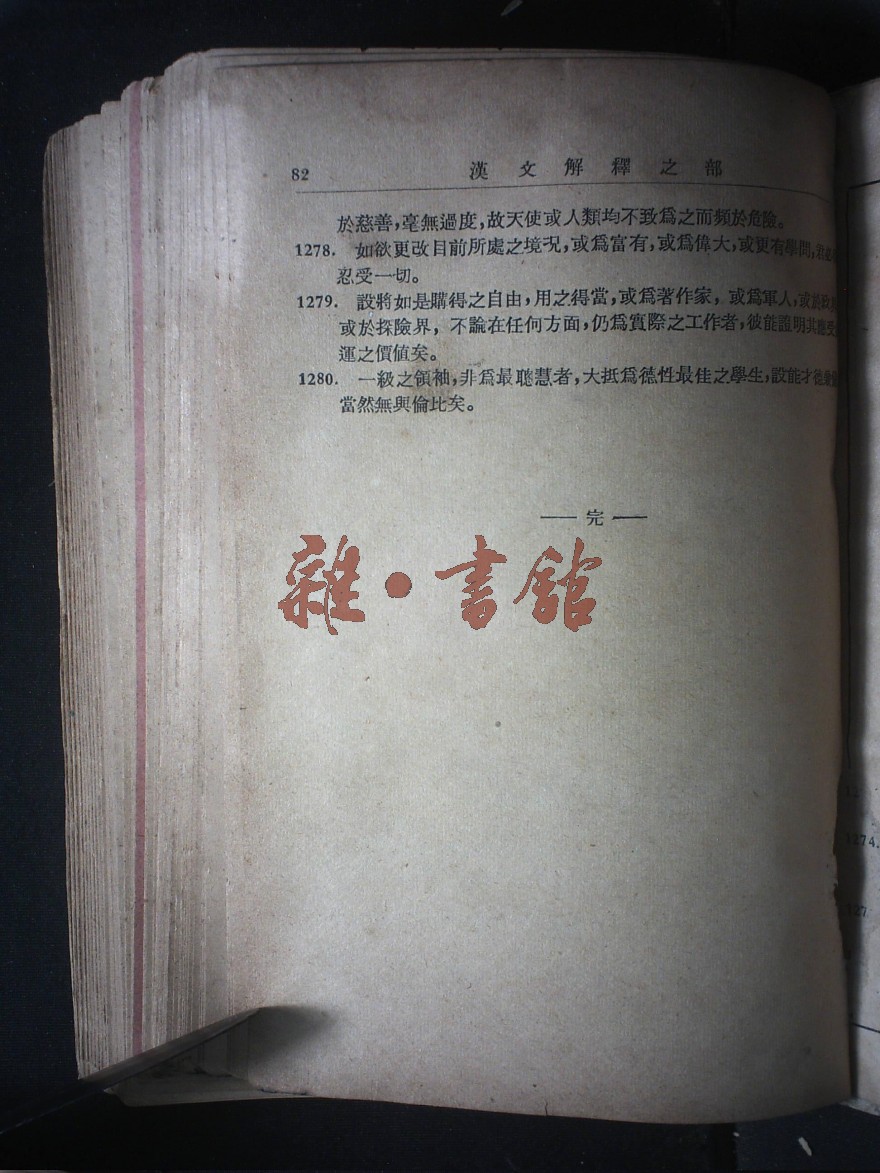 82 漢文解釋之部
於慈善,毫無過度,故天使或人類均不致爲之而頻於危險。
1278. 如欲更改目前所處之境況,或爲富有,或爲偉大,或更有學問,若必
忍受一切。
1279. 設將如是購得之自由,用之得當,或爲著作家,或爲軍人,或於政
或於探險界,不論在任何方面,仍爲實際之工作者,彼能證明其應受
運之價值矣。
1280. 一級之領袖,非爲最聰慧者,大抵爲德性最佳之學生,設能才德兼
當然無與倫比矣。
—— 完 ——
雜·書館
1274.
127